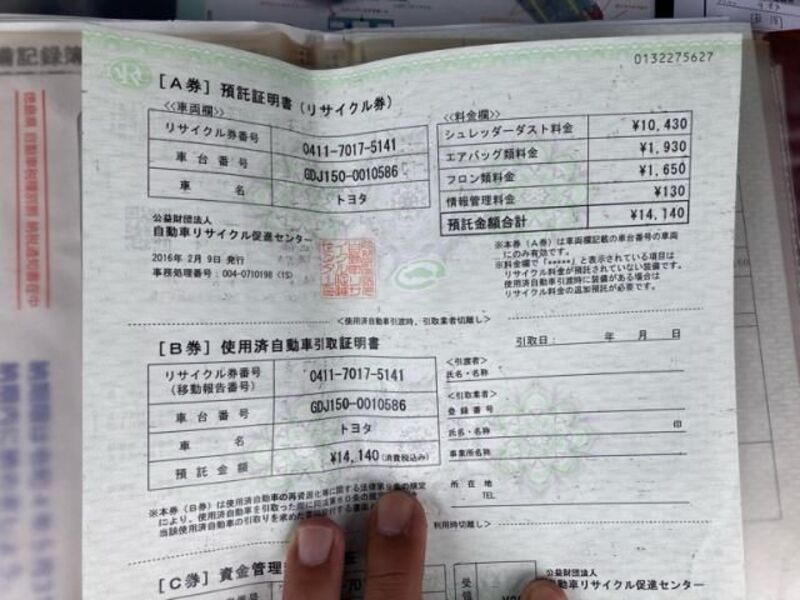 0132275627
[A券] 預託証明書(リサイクル券)
<<車両欄>>
リサイクル券番号 0411-7017-5141
車台番号 GDJ150-0010586
車名 トヨタ
<<料金欄>>
シュレッダーダスト料金 ¥10,430
エアバッグ類料金 ¥1,930
フロン類料金 ¥1,650
情報管理料金 ¥130
預託金額合計 ¥14,140
公益財団法人
自動車リサイクル促進センター
2016年 2月 9日 発行
事務処理番号:004-0710198 (1S)
※本券(A券)は車両欄記載の車台番号の車両
にのみ有効です。
※料金欄で「*****」と表示されている項目は
リサイクル料金が預託されていない装備です。
使用済自動車引渡時に装備がある場合は
リサイクル料金の追加預託が必要です。
<使用済自動車引渡時、引取業者切離し>
[B券] 使用済自動車引取証明書
引取日: 年 月 日
リサイクル券番号
(移動報告番号) 0411-7017-5141
車台番号 GDJ150-0010586
車名 トヨタ
預託金額 ¥14,140(消費税込み)
<引渡者>
氏名・名称
<引取業者>
登録番号
氏名・名称 印
事業所名称
所在地
TEL
※本券(B券)は使用済自動車の再資源化等に関する法律第
により、使用済自動車を引取った際に同法第80条の
当該使用済自動車の引取りを求めた
利用時切離し>
[C券] 資金管理
公益財団法人
自動車リサイクル促進センター